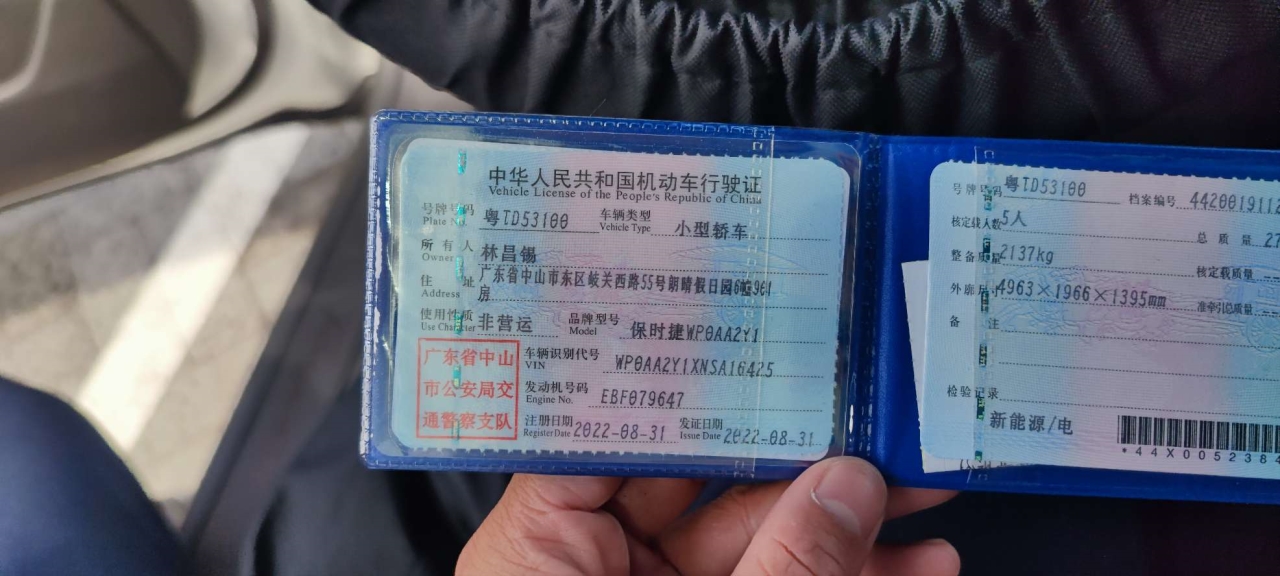 中华人民共和国机动车行驶证
Vehicle License of the People's Republic of China
号牌号码 粤TD53100 车辆类型 小型轿车
Plate No. Vehicle Type
所有人 林昌锡
Owner
住址 广东省中山市东区岐关西路55号朗晴假日园6幢901
Address 房
使用性质 非营运 品牌型号 保时捷WP0AA2Y1
Use Character Model
广东省中山
市公安局交
通警察支队
车辆识别代号 WP0AA2Y1XNSA16425
VIN
发动机号码 EBF079647
Engine No.
注册日期 2022-08-31 发证日期 2022-08-31
Register Date Issue Date
号牌号码 粤TD53100 档案编号 4420019112
核定载人数 5人 总质量
整备质量 2137kg 核定载质量
外廓尺寸 4963×1966×1395mm 准牵引总质量
备注
检验记录
新能源/电
*44X0052384